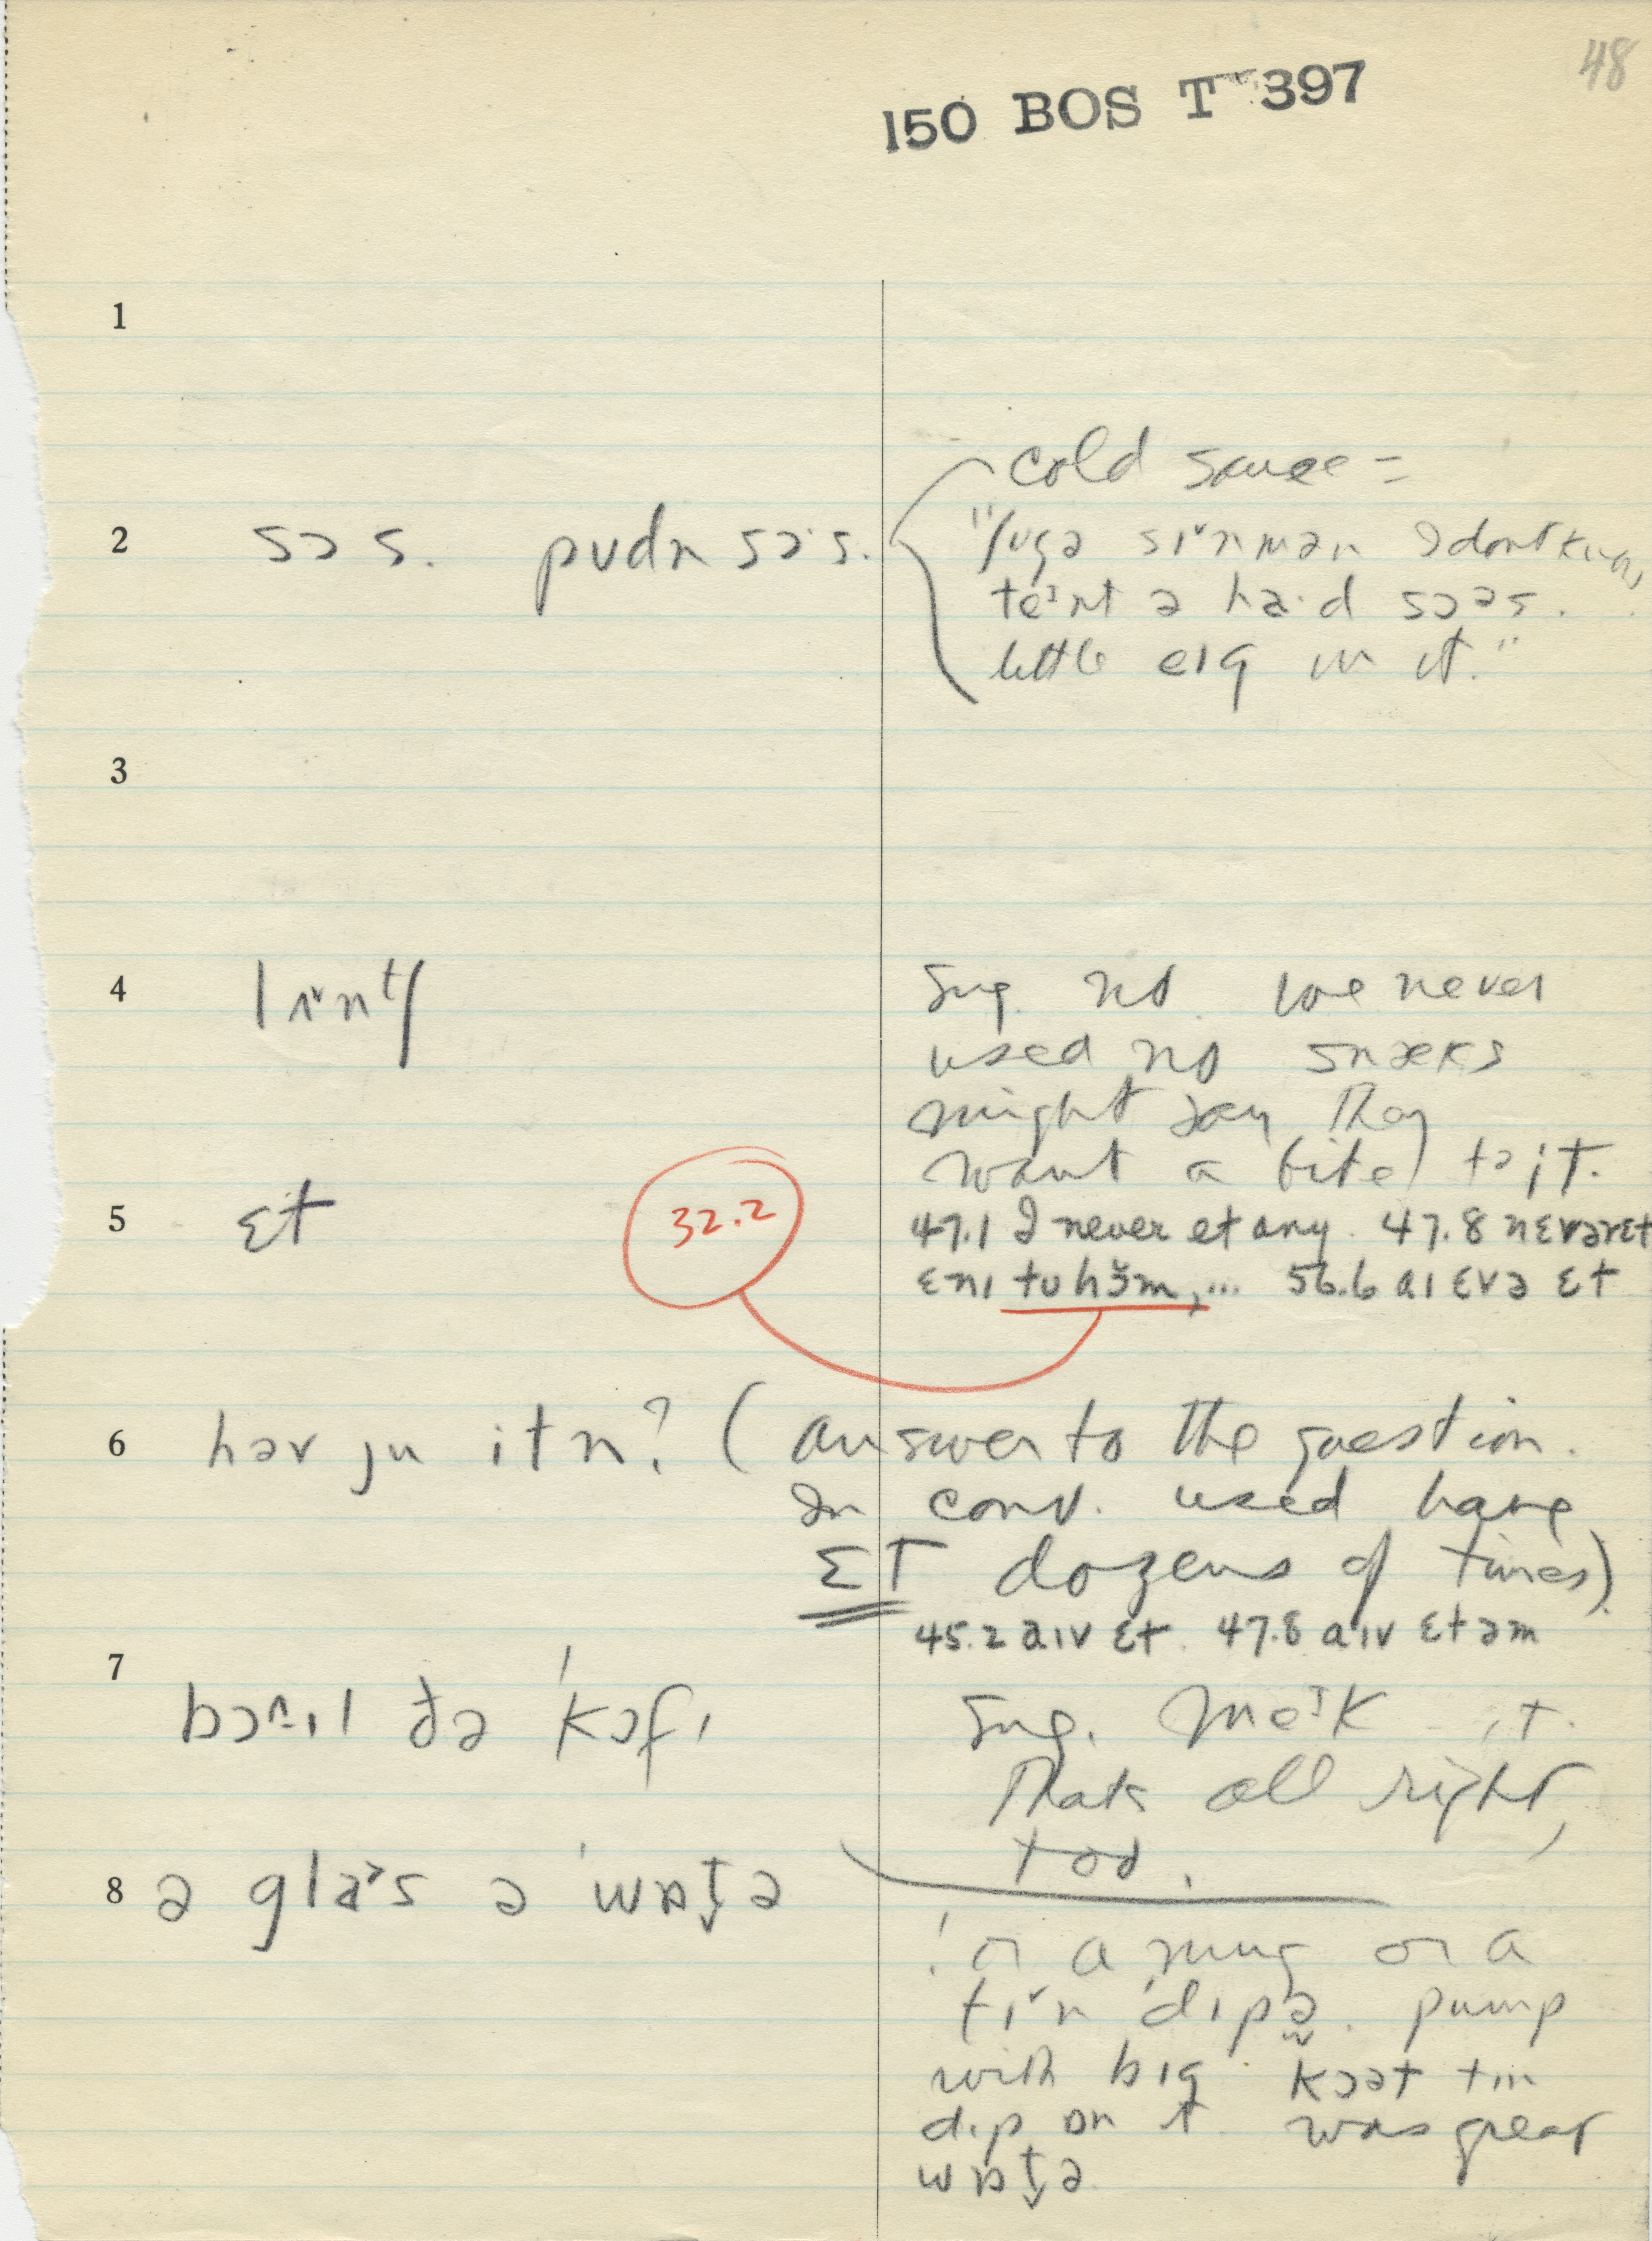 48
150 BOS T 397
1
cold sauce =
2 sɔs. pʊdn sɔ·s.
"ʃʊgə sɪ˅nmən I dont know,
teᶦnt a ha·d sɔəs.
little eɪg in it."
3
4 lɪ˅nᵗʃ
Sug. no we never
used no snæks
might say they
want a bite tə it.
5 ɛt
32.2
47.1 I never et any. 47.8 nɛvərɛt
ɛnɪ tʊ hɜ̆m,... 56.6 aɪ ɛvə ɛt
6 həv ju itn? (answer to the question.
In conv. used have
ɛt dozens of times)
45.2 aɪv ɛt. 47.8 aɪv ɛt əm
7
bɔ^·ɪl ðə ˈkɔfɪ
Sug. meᶦk it.
Thats all right,
too.
8 ə gla˃s ə ˈwɒt̬ə
! or a mug or a
tɪ˅n ˈdɪpə. pump
with bɪg kɔət tin
dip on it was great
wɒt̬ə